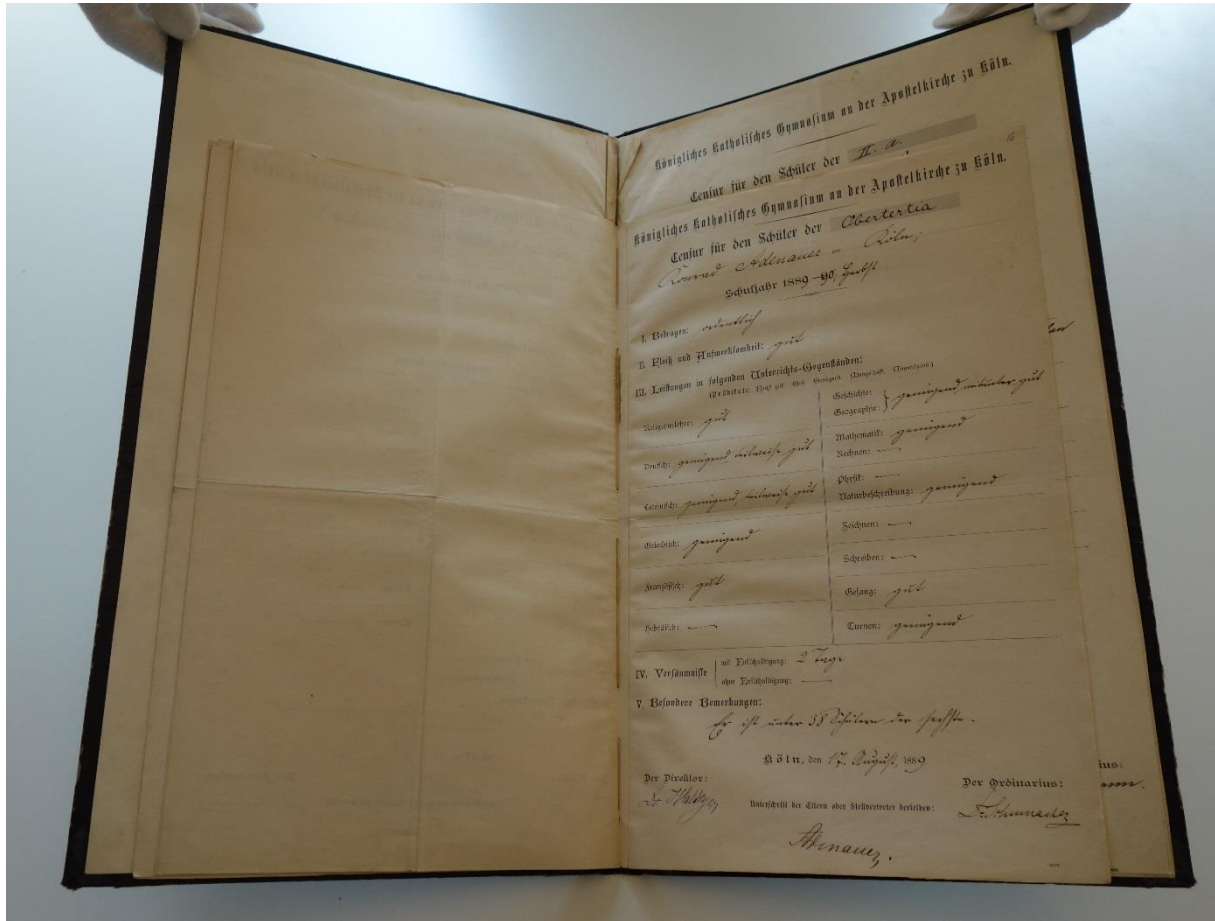 Königliches Katholisches Gymnasium an der Apostelkirche zu Köln.
Censur für den Schüler der II. a.
16
Königliches Katholisches Gymnasium an der Apostelkirche zu Köln.
Censur für den Schüler der Obertertia
Konrad Adenauer Köln;
Schuljahr 1889-90, Herbst
I. Betragen: ordentlich
II. Fleiß und Aufmerksamkeit: gut
III. Leistungen in folgenden Unterrichts-Gegenständen:
(Prädikate: Sehr gut. Gut. Genügend.
Religionslehre: gut
Deutsch: genügend teilweise gut
Lateinisch: genügend, teilweise gut
Griechisch: genügend
Französisch: gut
Hebräisch: —
Geschichte:
Geographie: } genügend, mitunter gut
Mathematik: genügend
Rechnen: —
Physik: —
Naturbeschreibung: genügend
Zeichnen: —
Schreiben: —
Gesang: gut
Turnen: genügend
IV. Versäumnisse
mit Entschuldigung: 2 Tage
ohne Entschuldigung: —
V. Besondere Bemerkungen:
Er ist unter 38 Schülern der sechste.
Köln, den 17. August, 1889
Der Direktor:
Der Ordinarius:
Dr. Schumacher
Unterschrift der Eltern oder Stellvertreter derselben:
Adenauer.